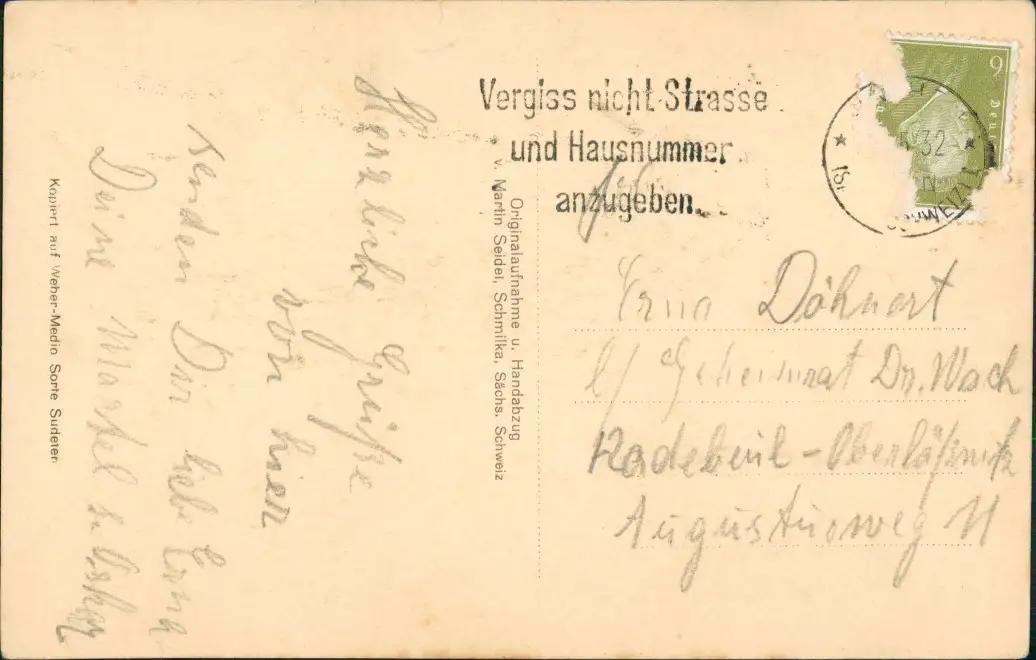 Vergiss nicht Strasse
und Hausnummer
anzugeben.
6
32
Erna Döhnert
b/ Geheimrat Dr. Wach
Radebeul-Oberlößnitz
Augustusweg 11
Herzliche Grüße
von hier
senden Dir liebe Erna
Deine Martel u. Oskar
Originalaufnahme u. Handabzug
v. Martin Seidel, Schmilka, Sächs. Schweiz
Kopiert auf Weber-Medio Sorte Sudeten